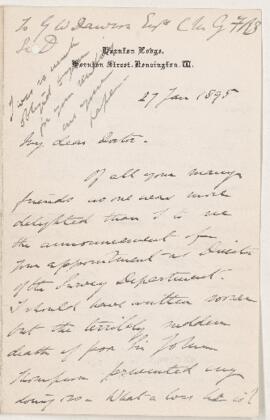 To G W Dawson Esqre C.M.G. FRS
Hornton Lodge,
Hornton Street, Kensington. W.
I was so much
obliged
for your
paper
27 Jan 1895
My dear Doctor.
Of all your many
friends no one was more
delighted than I to see
the announcement of
your appointment as Director
of the Survey Department.
I should have written sooner
but the terribly sudden
death of poor Sir John
Thompson prevented my
doing so. What a loss he is!